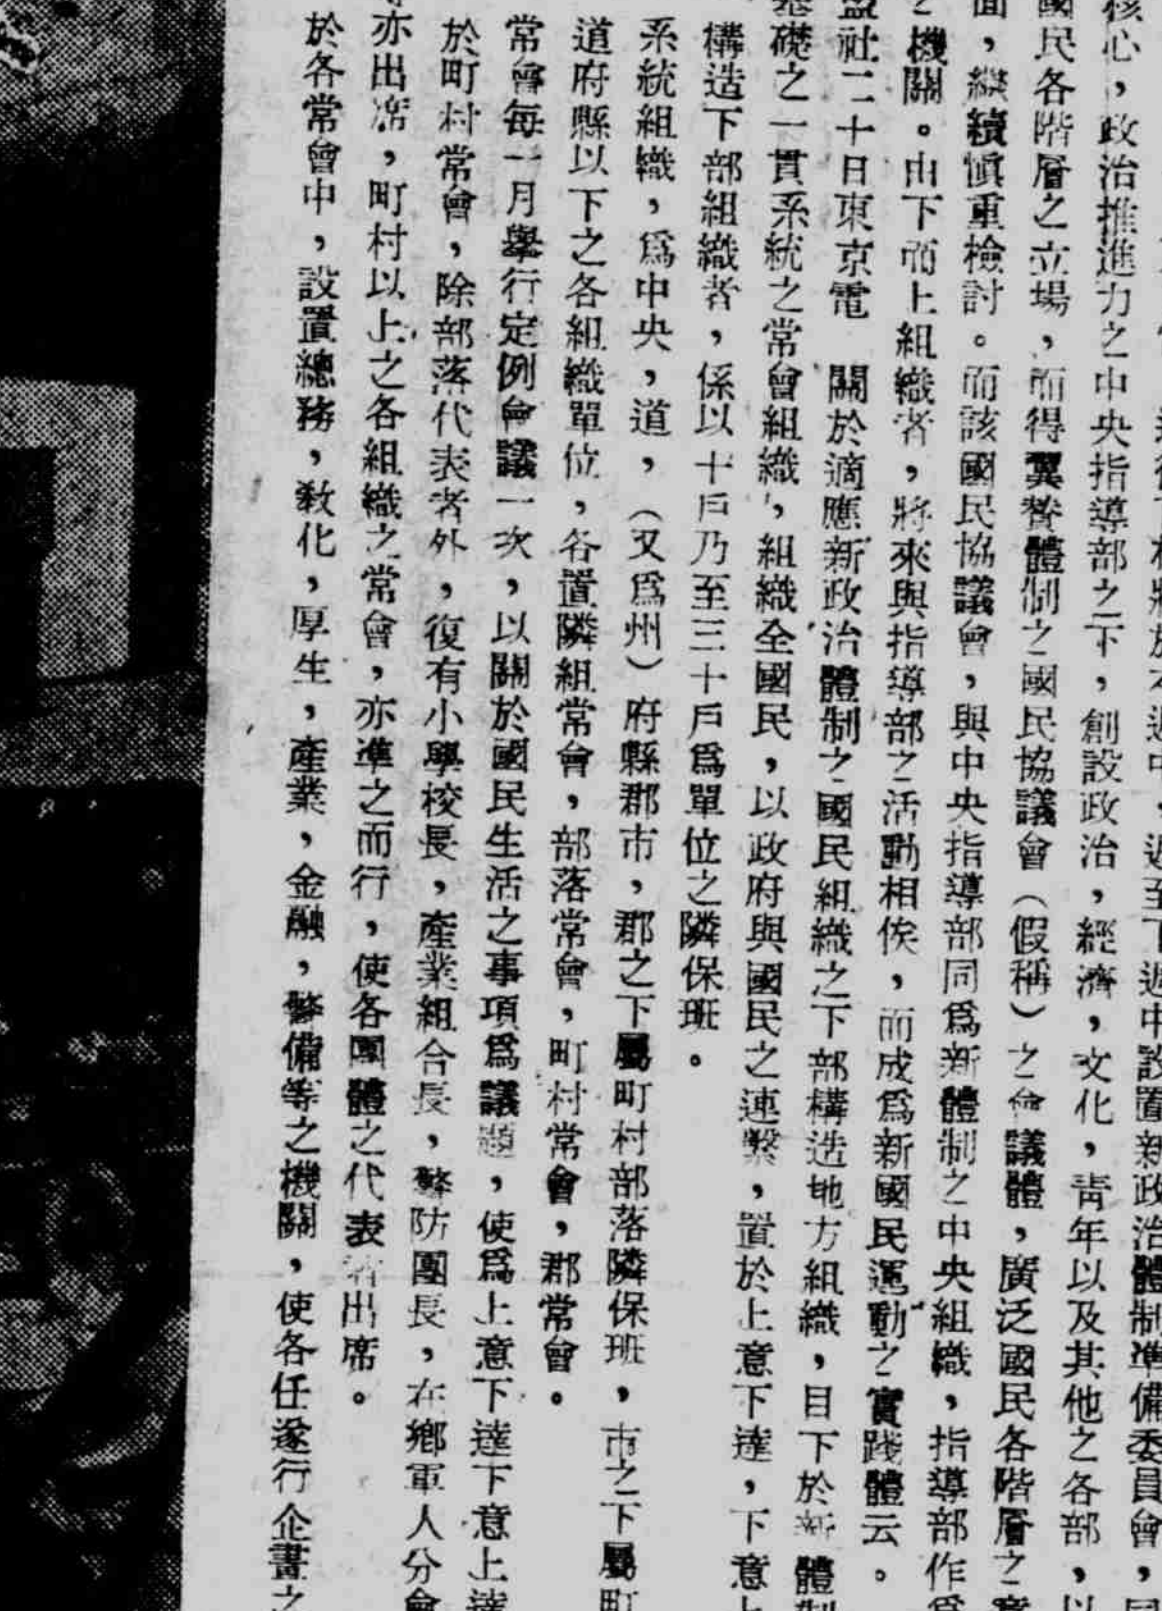 週至下週中設置新政治體制準備委員會，
核心，政治推進力之中央指導部之下，創設政治，經濟，文化，青年以及其他之各部，以
國民各階層之立場，而得翼贊體制之國民協議會（假稱）之會議體，廣泛國民各階層之
面，繼續愼重檢討。而該國民協議會，與中央指導部同爲新體制之中央組織，指導部作爲
之機關。由下而上組織者，將來與指導部之活動相俟，而成爲新國民運動之實踐體云。
盟社二十日東京電　關於適應新政治體制之國民組織之下部構造地方組織，目下於新體制
基礎之一貫系統之常會組織，組織全國民，以政府與國民之連繫，置於上意下達，下意上
構造下部組織者，係以十戶乃至三十戶爲單位之隣保班。
系統組織，爲中央，道，（又爲州）府縣郡市，郡之下屬町村部落隣保班，市之下屬町
道府縣以下之各組織單位，各置隣組常會，部落常會，町村常會，郡常會。
常會每一月舉行定例會議一次，以關於國民生活之事項爲議題，使爲上意下達下意上達
於町村常會，除部落代表者外，復有小學校長，產業組合長，警防團長，在鄉軍人分會
亦出席，町村以上之各組織之常會，亦準之而行，使各團體之代表者出席。
於各常會中，設置總務，敎化，厚生，產業，金融，警備等之機關，使各任遂行企畫之